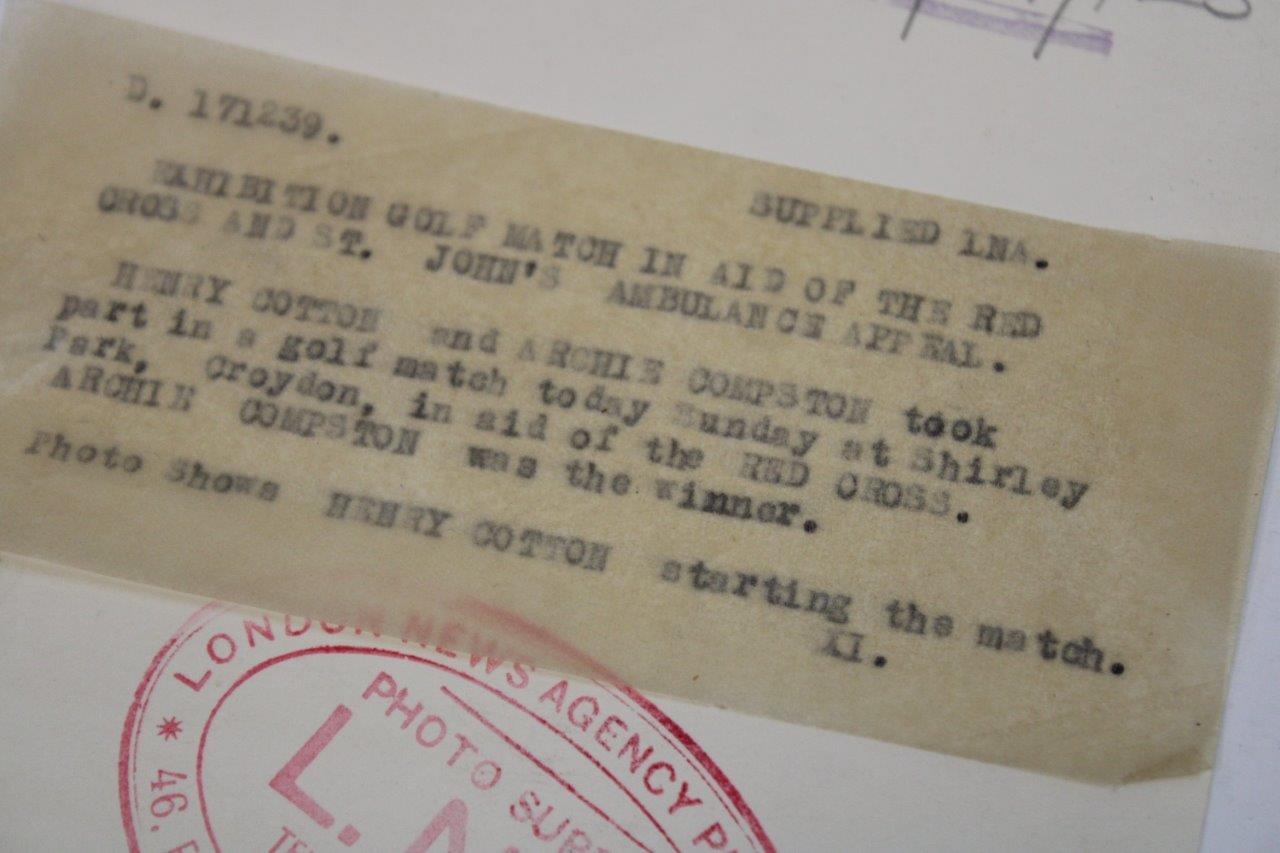 D. 171239.
SUPPLIED LNA.
EXHIBITION GOLF MATCH IN AID OF THE RED
CROSS AND ST. JOHN'S AMBULANCE APPEAL.
HENRY COTTON and ARCHIE COMPSTON took
part in a golf match today Sunday at Shirley
Park, Croydon, in aid of the RED CROSS.
ARCHIE COMPSTON was the winner.
Photo Shows HENRY COTTON starting the match.
XI.
* LONDON NEWS AGENCY
PHOTO
L.
46.